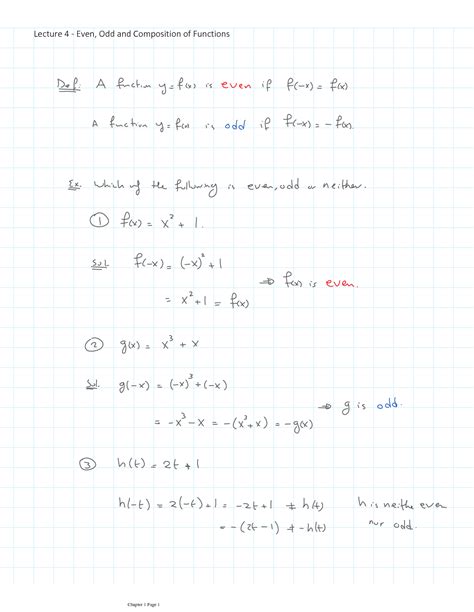 Lecture 4 - Even, Odd and Composition of Functions
Def. A function y=f(x) is even if f(-x) = f(x)
A function y=f(x) is odd if f(-x) = - f(x).
Ex. Which of the following is even, odd or neither.
① f(x) = x² + 1.
Sol. f(-x) = (-x)² + 1
⇒ f(x) is even.
= x² + 1 = f(x)
② g(x) = x³ + x
Sol. g(-x) = (-x)³ + (-x)
⇒ g is odd.
= -x³ - x = -(x³ + x) = -g(x)
③ h(t) = 2t + 1
h(-t) = 2(-t) + 1 = -2t + 1 ≠ h(t) h is neithe even
= -(2t - 1) ≠ -h(t) nur odd.
Chapter 1 Page 1